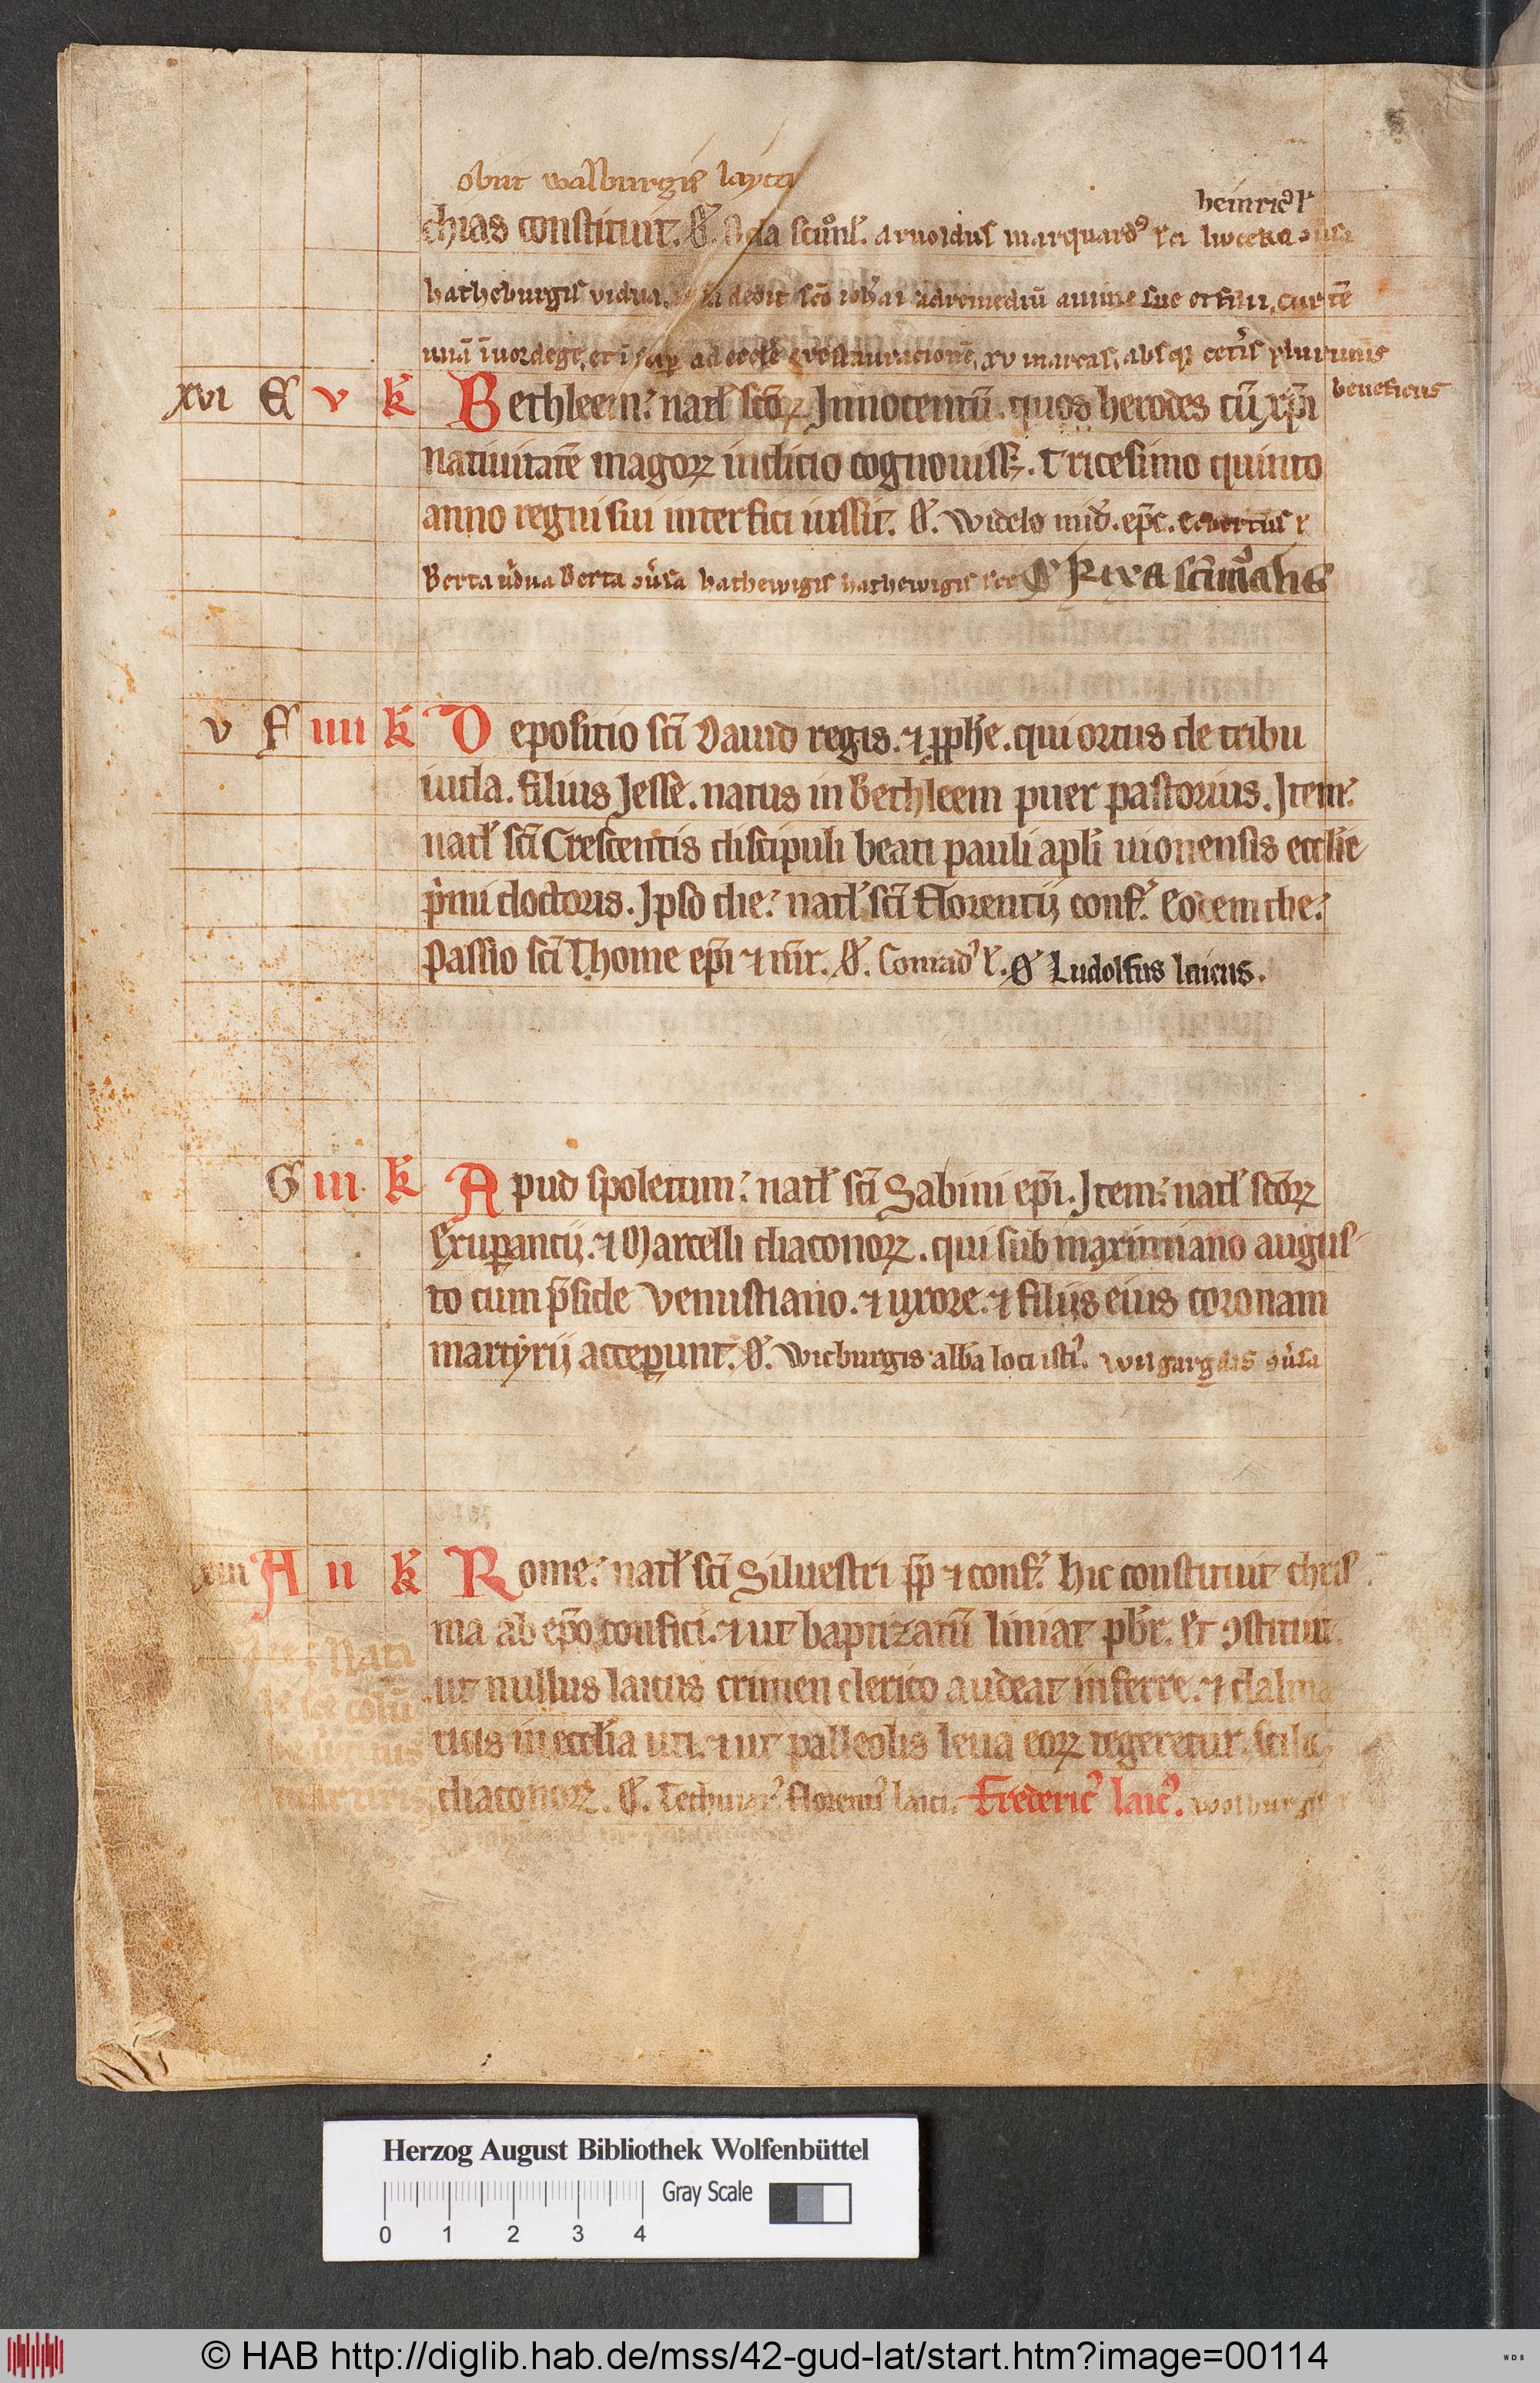 obiit walburgis layca
heinric9 l'
chias constituit. Ꝋ. Oda scimōl'. arnoldus marquard9 lai
hatheburgis vidua. dedit sc̄o ioh̄ai ad remediū anime sue et filii, curtē
unā ī uordege, et ī sup̄ ad eccl'e restauracionē, xv marcas, absq; cet'is plurimis
beneficiis
xvi E v k̄ Bethleem: natl' sc̄oꝝ Innocentū. quos herodes cū xp̄i
natiuitatē magoꝝ indicio cognouiss;. Tricesimo quinto
anno regni sui interfici iussit. Ꝋ. Widelo mīd'. ep̄c. Ecbertus l'
Berta uidua Berta 9u'sa hathewigis hathewigis Ꝋ Rixa scīmōalis
v F iiii k̄ Depositio sc̄i Dauid regis. ⁊ p̄ph̄e. qui ortus de tribu
iuda. filius Jesse. natus in Bethleem puer pastorius. Item:
natl' sc̄i Crescentis discipuli beati pauli apl'i uionensis eccl'ie
p'mi doctoris. Ipso die: natl' sc̄i florentij conf'. Eodem die:
Passio sc̄i Thome ep̄i ⁊ mr̄. Ꝋ. Conrad9 l'. Ꝋ Ludolfus laicus.
G iii k̄ Apud spoletum: natl' sc̄i Sabini ep̄i. Item: natl' sc̄oꝝ
Exuꝑantij. ⁊ Marcelli diaconoꝝ. qui sub maximiano augus-
to cum p̄side Venustiano. ⁊ uxore. ⁊ filijs eius coronam
martyrij acceꝑunt. Ꝋ. Wicburgis alb̄a loci isti9. Wilgardis 9u'sa
xiii A ii k̄ Rome: natl' sc̄i Siluestri p̄p ⁊ conf'. hic constituit chris-
ma ab ep̄o confici. ⁊ ut baptizatū liniat pb̄r. Et 9stituit.
Nata
ut nullus laicus crimen clerico audeat inferre. ⁊ dalma
de sc̄e colū
ticis in eccl'ia uti. ⁊ ut palleolis leua eoꝝ tegeretur. scil'
be uirginis
martiris
diaconoꝝ. Ꝋ. florenti9 laici. Frederic9 laic9. Wolburgis
Herzog August Bibliothek Wolfenbüttel
Gray Scale
0 1 2 3 4
© HAB http://diglib.hab.de/mss/42-gud-lat/start.htm?image=00114
WDB